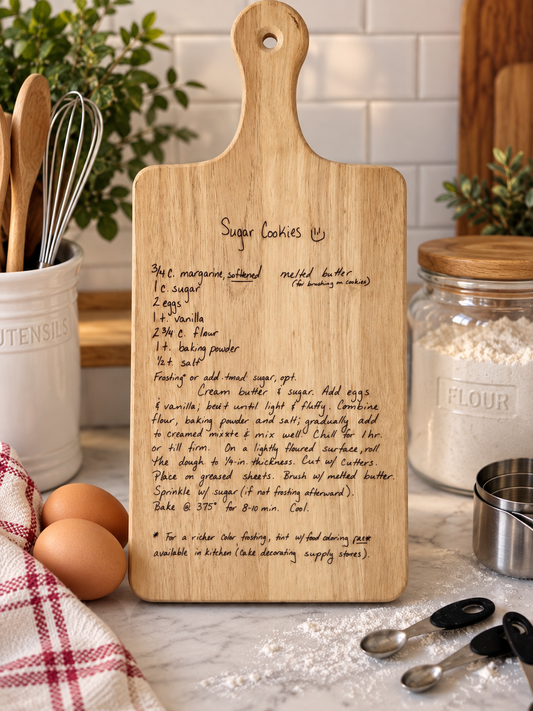 Sugar Cookies
3/4 c. margarine, softened melted butter
(for brushing on cookies)
1 c. sugar
2 eggs
1 t. vanilla
2 3/4 c. flour
1 t. baking powder
1/2 t. salt
Frosting* or add. sugar, opt.
Cream butter & sugar. Add eggs
& vanilla; beat until light & fluffy. Combine
flour, baking powder and salt; gradually add
to creamed & mix well. Chill for 1 hr.
or till firm. On a lightly floured surface, roll
the dough to 1/4-in. thickness. Cut w/ cutters.
Place on greased sheets. Brush w/ melted butter.
Sprinkle w/ sugar (if not frosting afterward).
Bake @ 375° for 8-10 min. Cool.
* For a richer color frosting, tint w/ food coloring
available in kitchen (cake decorating supply stores).
UTENSILS
FLOUR